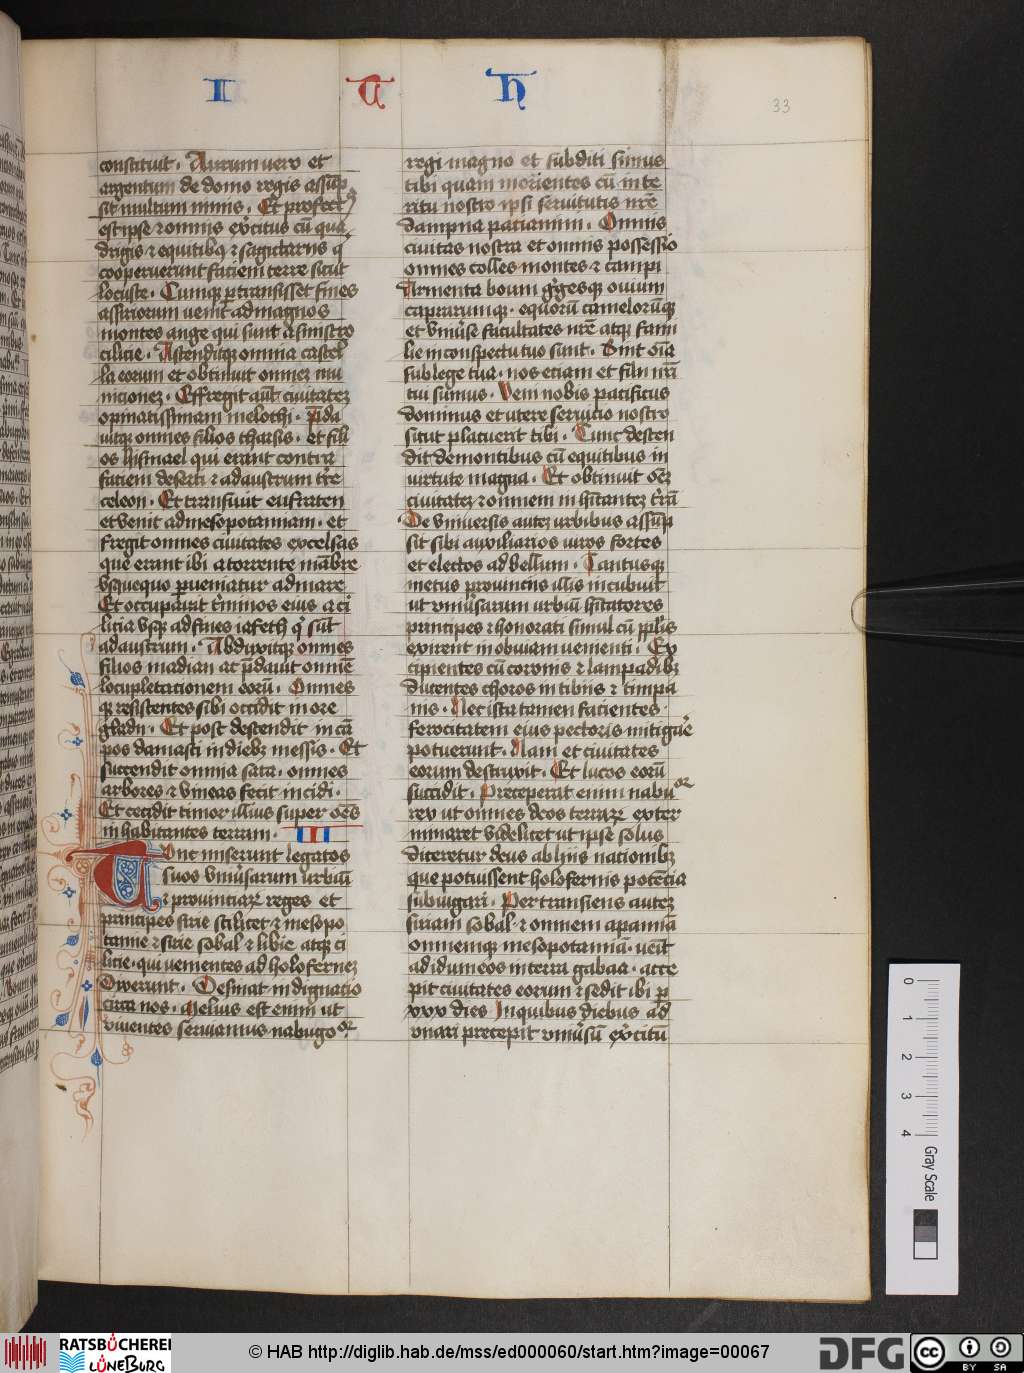 I U D H
33
constituit . Aurum vero et
argentum de domo regis assūp
sit multum nimis . Et profect9
est ipse et omnis exercitus cū qua
drigis et equitibus et sagittariis q
cooperuerunt faciem terre sicut
locuste . Cumque pertransisset fines
assiriorum venit ad magnos
montes ange qui sunt a sinistro
cilicie . Ascenditque omnia castel
la eorum et obtinuit omnez mu
nicionez . Effregit aūt civitatez
opinatissimam melothi . preda
vitque omnes filios tharsis . et fili
os hismael qui erant contra
faciem deserti et ad austrum terre
celeon . Et transivit eufraten
et venit ad mesopotamiam . et
fregit omnes civitates excelsas
que erant ibi a torrente mābre
usquequo perveniatur ad mare
Et occupavit terminos eius a ci
licia usque ad fines iafeth qui sūt
ad austrum . Abduxitque omnes
filios madian ac predavit omnē
locupletacionem eorū . Omnes
que resistentes sibi occidit in ore
gladii . Et post descendit in cā
pos damasci in diebus messis . Et
succendit omnia sata . omnes
arbores et vineas fecit incidi .
Et cecidit timor illius super oēs
inhabitantes terram . III
Tunc miserunt legatos
suos universarum urbiū
et provinciarum reges et
principes sirie scilicet et mesopo
tamie et sirie sobal et libie atque ci
licie . qui venientes ad holofernez
dixerunt . Desinat indignatio
circa nos . Melius est enim ut
viventes serviamus nabugo or
regi magno et subditi simus
tibi quam morientes cū inte
ritu nostro ipsi servitutis nrē
dampna patiamur . Omnis
civitas nostra et omnis possessio
omnes colles montes et campi
Armenta boum gregesque ovium
caprarumque . equorū camelorūque
et universe facultates nrē atque fami
lie in conspectu tuo sunt . Sint oīa
sub lege tua . nos etiam et filii nrī
tui sumus . Veni nobis pacificus
dominus et utere servicio nostro
sicut placuerit tibi . Tunc descen
dit de montibus cū equitibus in
virtute magna . Et obtinuit oēz
civitatez et omnem inhitantez terrā
De universis autez urbibus assūp
sit sibi auxiliarios viros fortes
et electos ad bellum . Tantusque
metus provinciis illis incubuit
ut universarum urbiū hitatores
principes et honorati simul cū populis
exirent in obviam venienti . Ex
cipientes cū coronis et lampadibus
ducentes choros in tibiis et timpa
nis . Nec ista tamen facientes .
ferocitatem eius pectoris mitigare
potuerunt . Nam et civitates
eorum destruxit . Et lucos eorū
succidit . Preceperat enim nabu or
rex ut omnes deos terrarum exter
minaret videlicet ut ipse solus
diceretur deus ab hiis nationibus
que potuissent holofernis potencia
subiugari . Per transiens autez
siriam sobal . et omnem apamiā
omnemque mesopotamiā . venit
ad idumeos in terra gabaa . acce
pit civitates eorum et sedit ibi per
xxx dies In quibus diebus ad
unari precepit universū exercitū
RATSBÜCHEREI
LÜNEBURG
© HAB http://diglib.hab.de/mss/ed000060/start.htm?image=00067
DFG
cc BY SA
0 1 2 3 4 Gray Scale